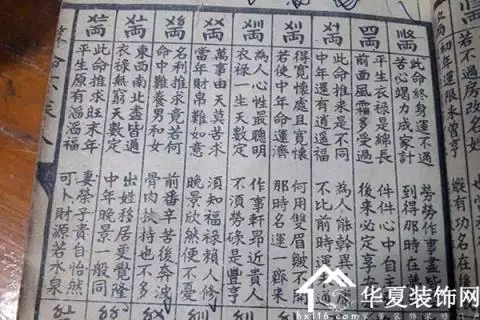 若不過房改名姓
初年運限未曾亨 縱有功名在
此命終身運不通 勞勞作事盡
苦心竭力成家計 到得那時在
四兩
平生衣祿是綿長 件件心中自
前面風霜多受過 後來必定享
兩
此命推來是不同 為人能幹異
中年還有逍遙福 不比前時運
兩
得寬懷處且寬懷 何用雙眉皺不開
若使中年命運濟 那時名運一齊來
兩
為人心性最聰明 作事軒昂近貴人
衣祿一生天數定 不須勞碌是豐亨
兩
萬事由天莫苦求 須知福祿賴人修
當年財帛難如意 晚景欣然便不憂
兩
名利推求竟若何 前番辛苦後奔波
命中難養男和女 骨肉扶持也不多
兩
東西南北盡皆通 出姓移居更覺隆
衣祿無窮天數定 中年晚景一般同
兩
此命推求旺末年 妻榮子貴自怡然
平生原有滔滔福 可卜財源若水泉
华夏装饰网